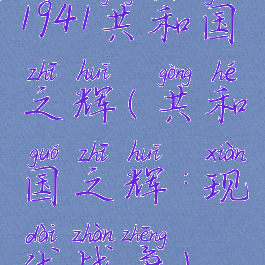 1941共和国
zhī huī gòng hé
之辉(共和
guó zhī huī xiàn
国之辉:现
dài zhàn zhēng
代战争)